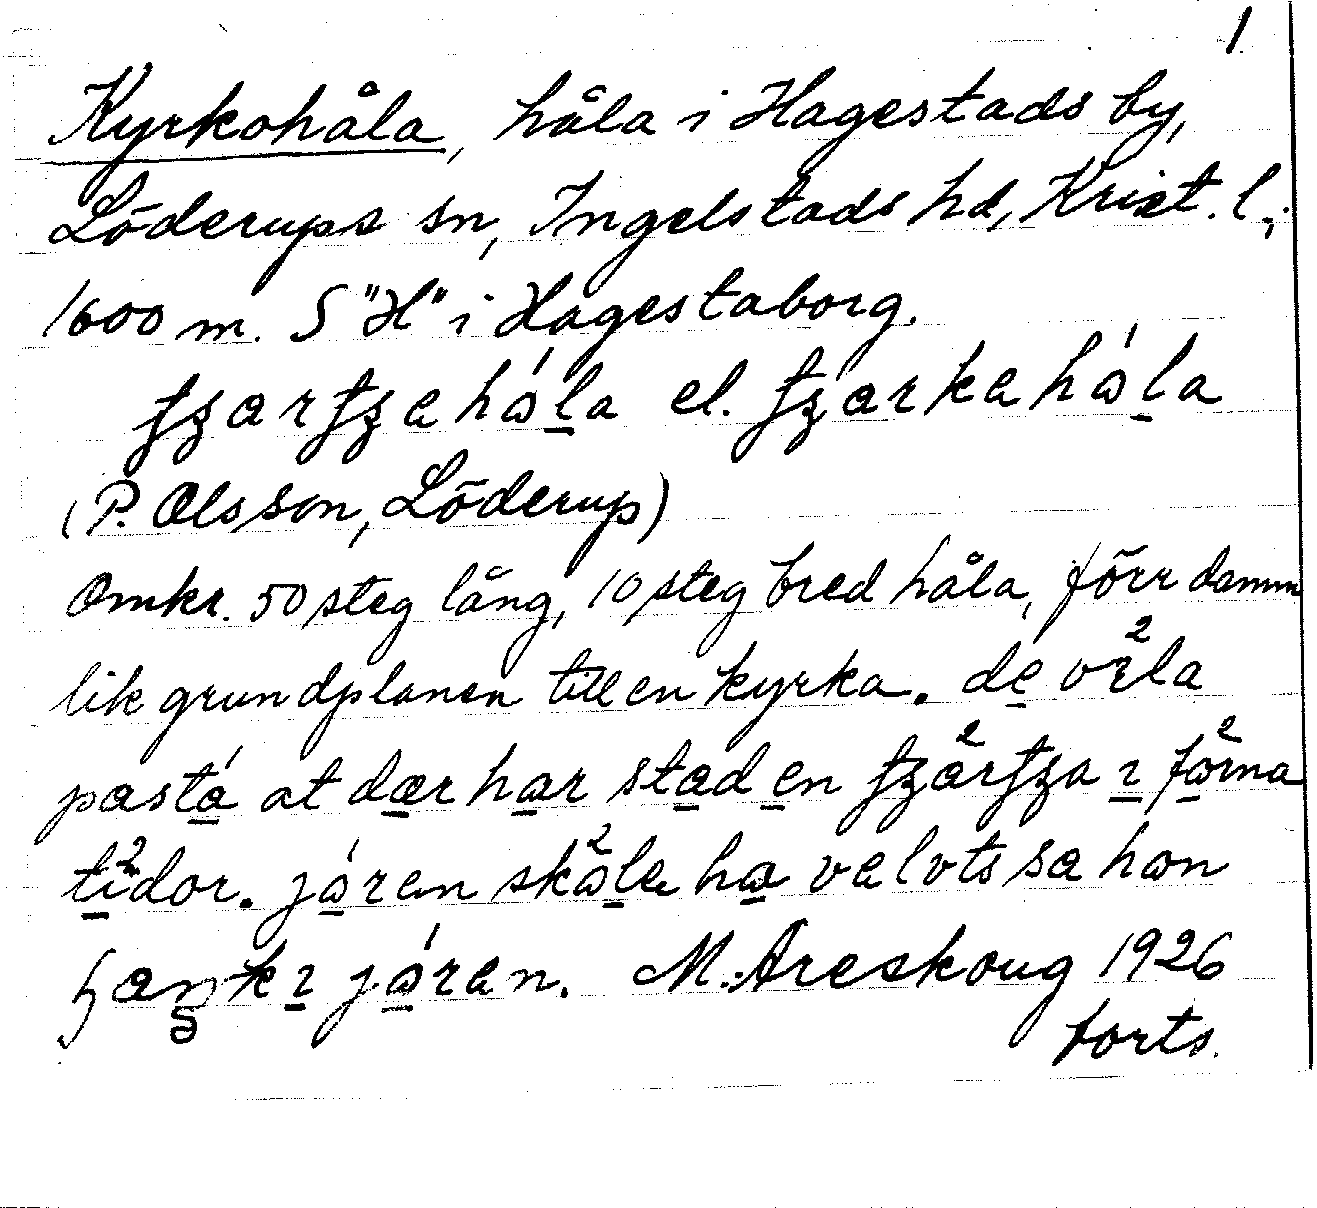 1
Kyrkohåla, håla i Hagestads by,
Löderups sn, Ingelstads hd, Krist. l.;
1600 m. S "H" i Hagestaborg.
el.
(P. Olsson, Löderup)
Omkr. 50 steg lång, 10 steg bred håla, förr damm
lik grundplanen till en kyrka. de vɪla
pastá at dær har stad en i fɑ̊rna
tidor. jɑ́ren skɑ̊le ha velvts sa han
jɑ́ren. M. Areskoug 1926
forts.